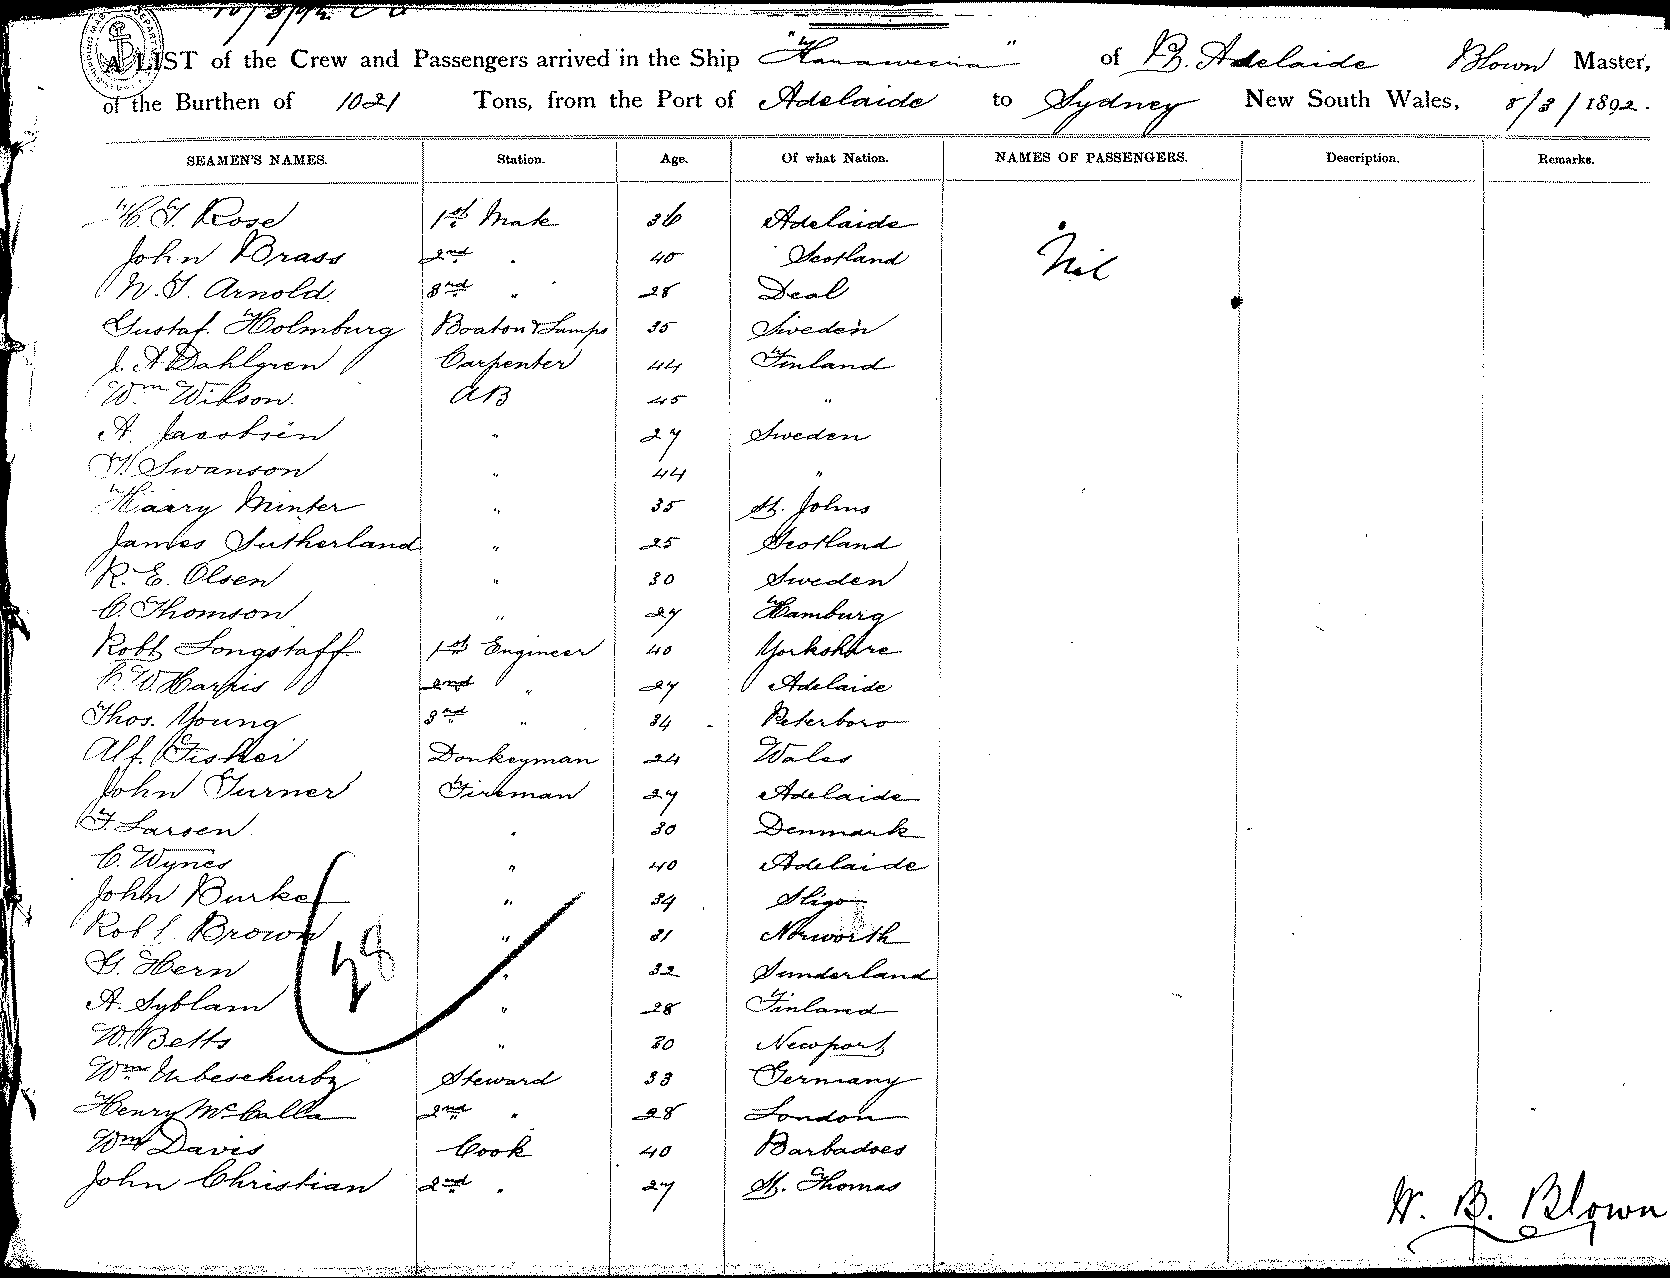 A LIST of the Crew and Passengers arrived in the Ship "Kanaweena" of Pt. Adelaide Blown Master,
of the Burthen of 1021 Tons, from the Port of Adelaide to Sydney New South Wales, 8/3/1892.
SEAMEN'S NAMES. Station. Age. Of what Nation. NAMES OF PASSENGERS. Description. Remarks.
Rose 1st Mate 36 Adelaide
John Brass 2nd " 40 Scotland Nil
Arnold 3rd " 28 Deal
Gustaf. Holmburg Boatsn & Lamps 35 Sweden
J. A Dahlgren Carpenter 44 Finland
Wm Wilson. AB 45 "
A. Jacobsen " 27 Sweden
Swanson " 44 "
Haary Minter " 35 St. Johns
James Sutherland " 25 Scotland
R. E. Olsen " 30 Sweden
C. Thomson " 27 Hamburg
Robt Longstaff 1st Engineer 40 Yorkshire
C. W. Harris 2nd " 27 Adelaide
Thos. Young 3rd " 34 Peterboro
Alf. Fisher Donkeyman 24 Wales
John Turner Fireman 27 Adelaide
F. Larsen " 30 Denmark
C. Wynes " 40 Adelaide
John Burke " 34 Sligo
Robt Brown " 31
G. Hern " 32 Sunderland
A. Syblam " 28 Finland
W. Betts " 30 Newport
Wm Steward 33 Germany
Henry McCalla 2nd " 28 London
Wm Davis Cook 40 Barbadoes
John Christian 2nd " 27 St. Thomas
28
W. B. Blown